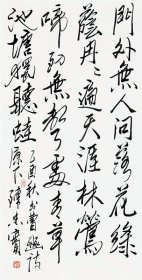 門外無人問落花綠
蔭冉冉遍天涯林鶯
啼到無聲處青草
池塘獨聽蛙
乙酉秋書曹豳詩